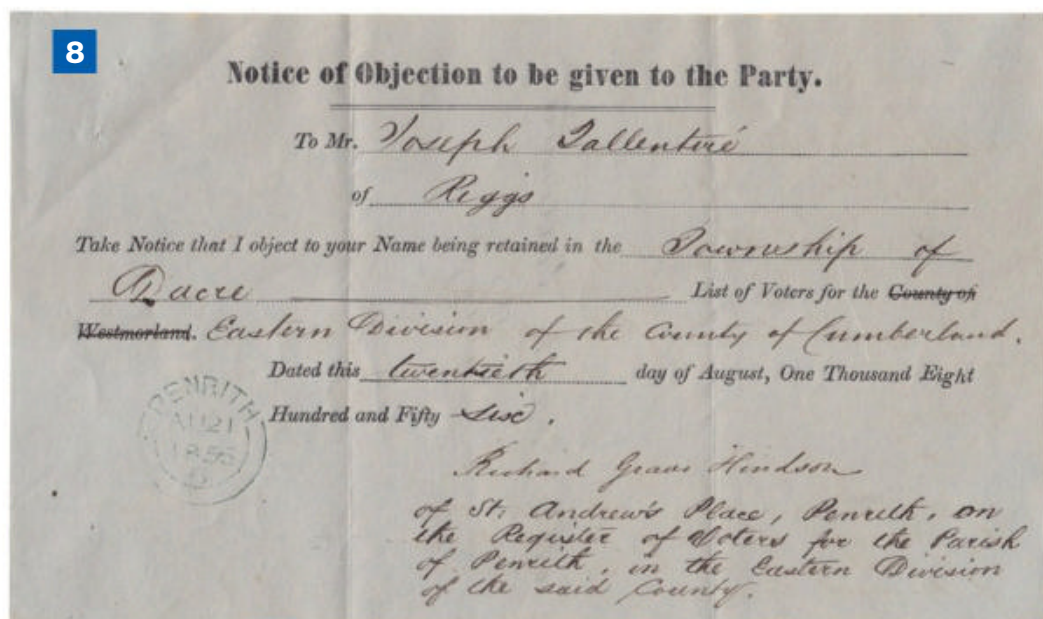 8
Notice of Objection to be given to the Party.
To Mr. Joseph Tallentire
of Riggs
Take Notice that I object to your Name being retained in the Township of
Dacre List of Voters for the County of
Westmorland. Eastern Division of the County of Cumberland.
Dated this twentieth day of August, One Thousand Eight
Hundred and Fifty Six.
PENRITH
AU 21
1856
Richard Grave Hindson
of St. Andrew's Place, Penrith, on
the Register of Voters for the Parish
of Penrith, in the Eastern Division
of the said County.